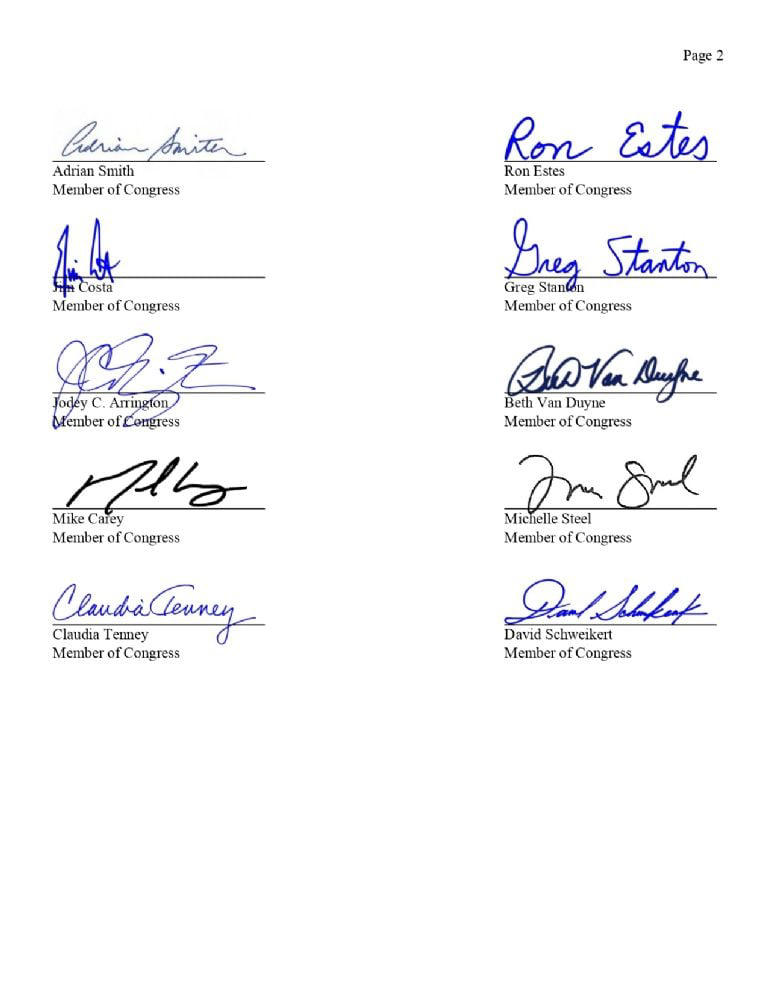 Page 2
Adrian Smith
Adrian Smith
Member of Congress
Ron Estes
Ron Estes
Member of Congress
Jim Costa
Jim Costa
Member of Congress
Greg Stanton
Greg Stanton
Member of Congress
Jodey C. Arrington
Member of Congress
Beth Van Duyne
Beth Van Duyne
Member of Congress
Mike Carey
Member of Congress
Michelle Steel
Member of Congress
Claudia Tenney
Claudia Tenney
Member of Congress
David Schweikert
David Schweikert
Member of Congress